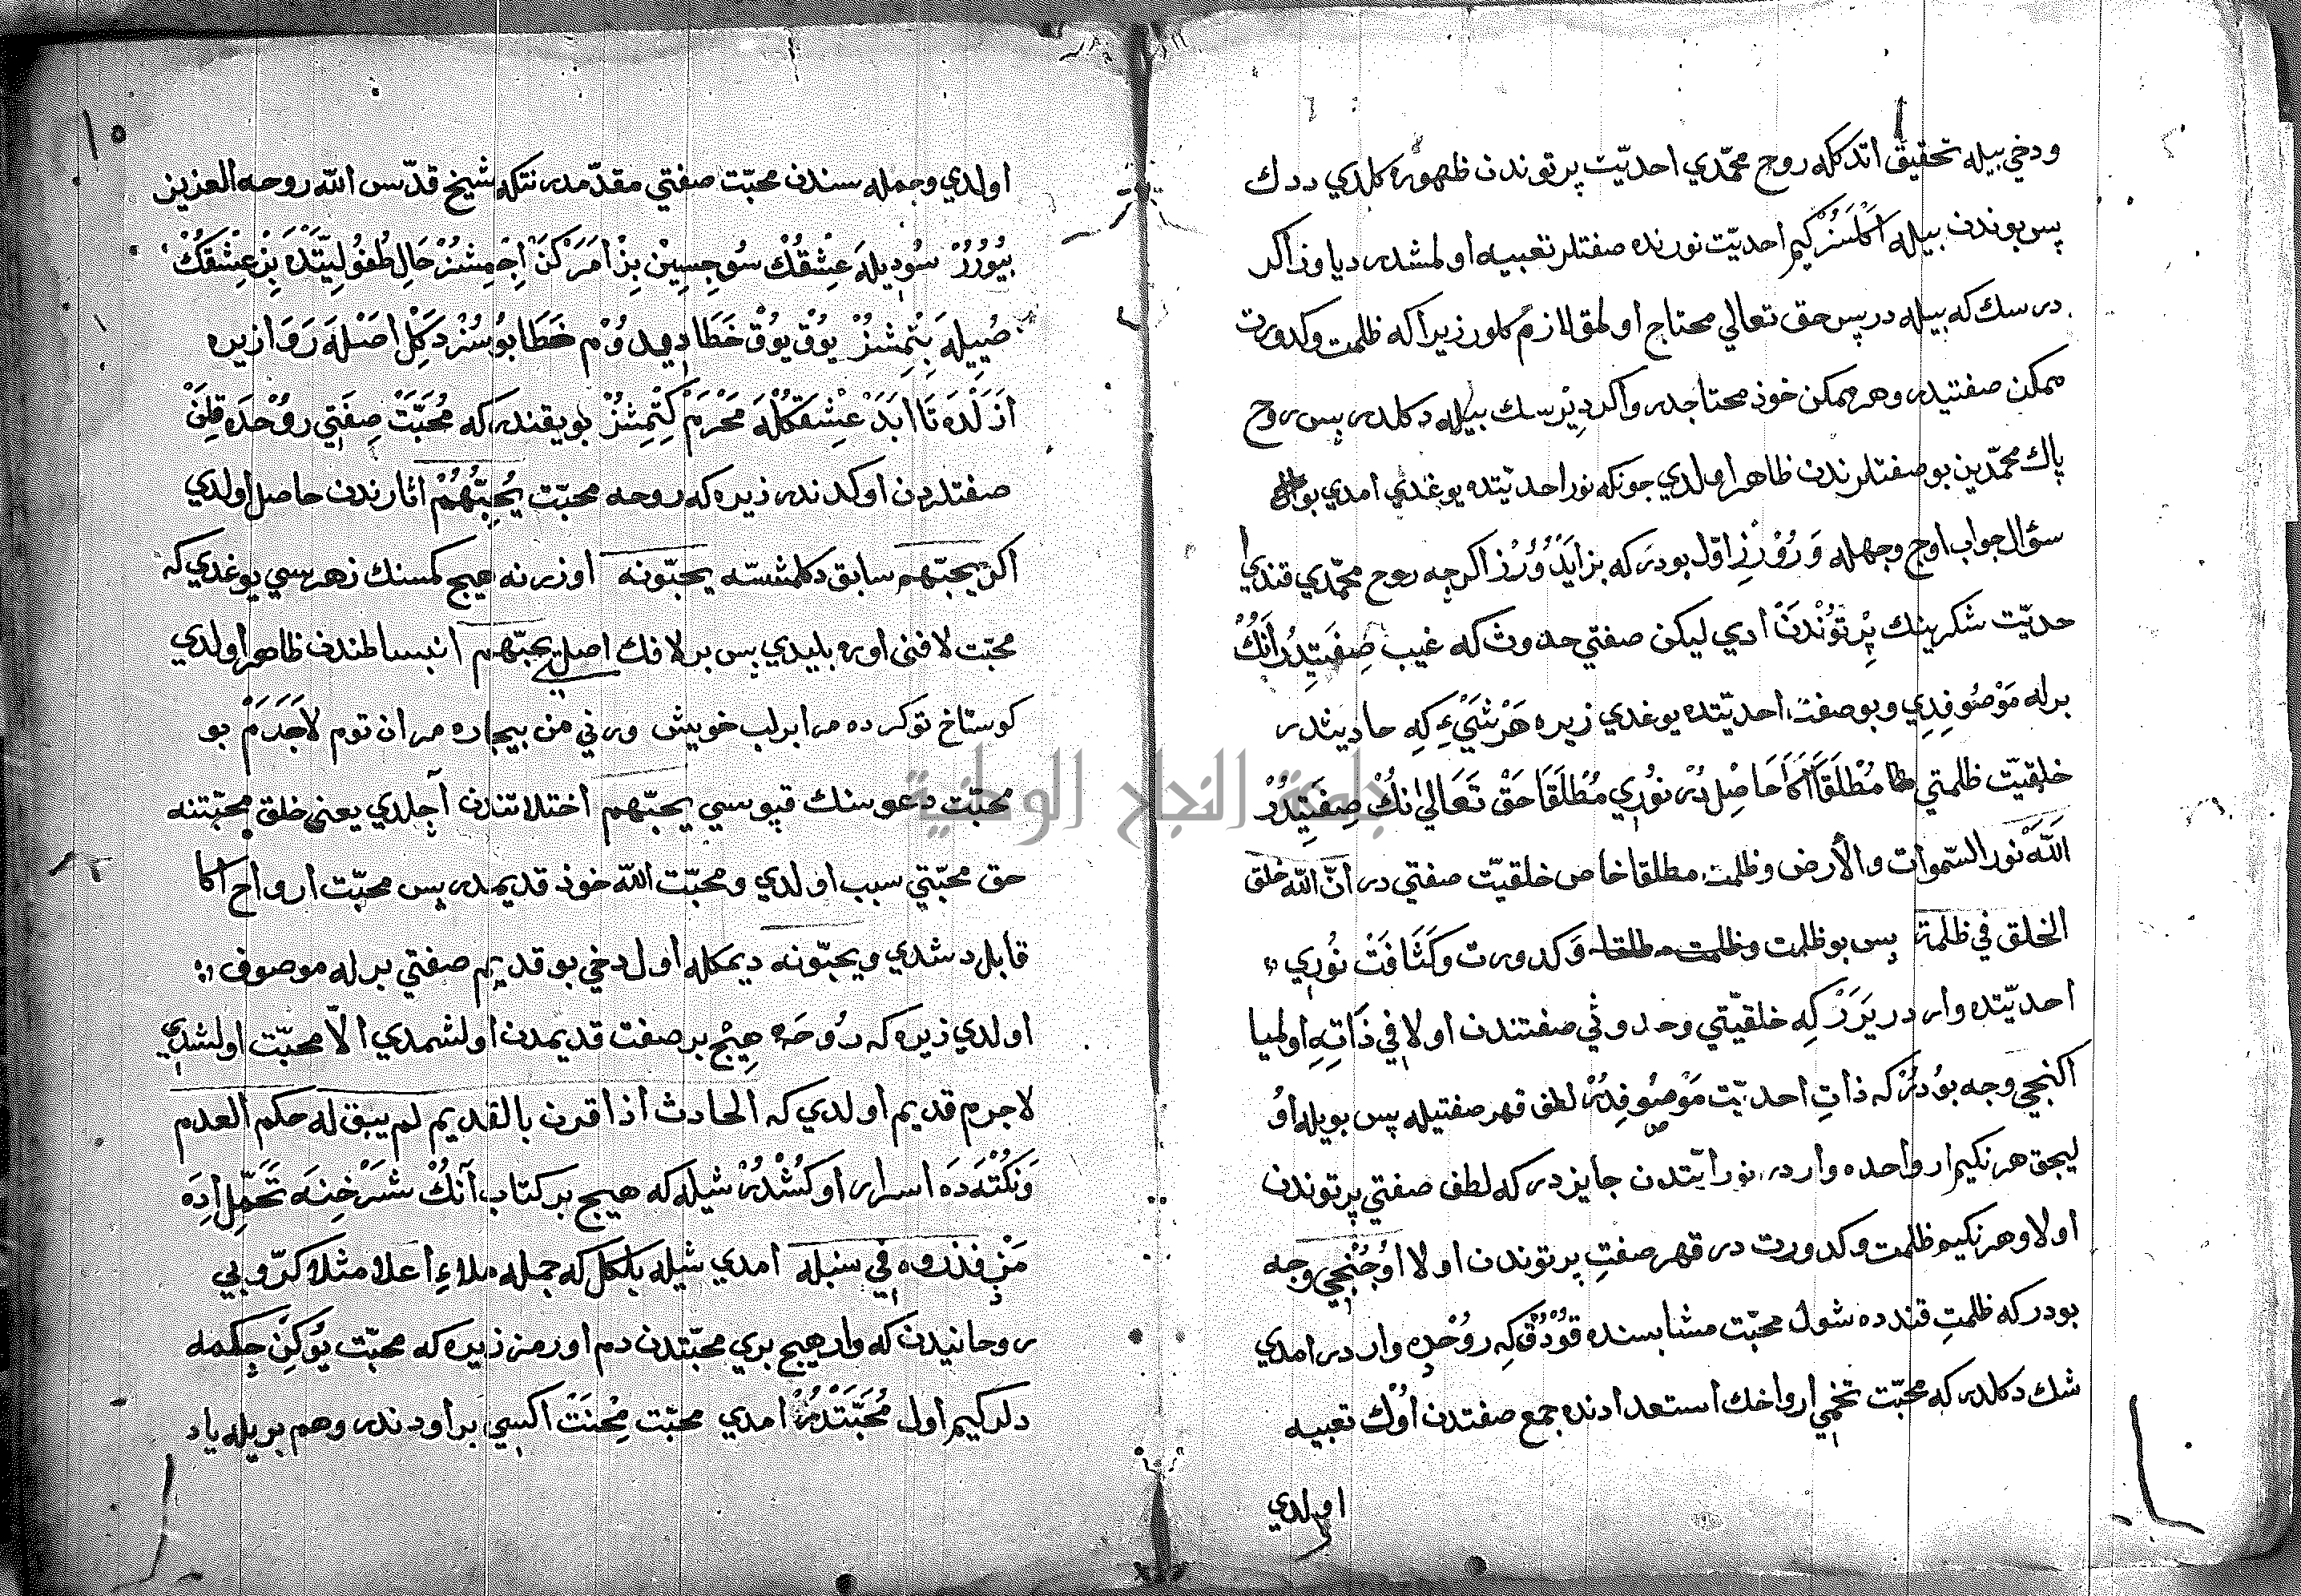 ودخي بيله تحقيق اتدكله روح محمّدي احديّت پرتوندن ظهوره كلدي ددك
پس بوندن بيله اكلسنز كيم احديّت نورنده صفتلر تعبيه اولمشدر ديا وز اكر
درسك كه بيله در پس حق تعالي محتاج اولمق لازم كلور زيرا كه ظلمت وكدورت
ممكن صفتيدر وهر ممكن خوذ محتاجدر واكر ديرسك بيله دكلدر پس روح
پاك محمّدين بو صفتلرندن ظاهر اولدي جونكه نور احديّتده يوغدي امدي بو
سؤال جواب اوج وجهله وَرُوْرُزِ اوّل بودر كه بز ايدَوُرُز اكرچه روح محمّدي قندي
حديّت شكرينك پرتوُنْدَنْ ادي ليكن صفتي حدوث كه غيب صِفَتِيدُر اَنُكْ
برله مَوْصُوفِدِي وبو صفت احديّتده يوغدي زيره هَرْ شَيْءِ كِه حاديثدر
خلقيّت ظلمتي مُطْلَقَا اَكَا حَاصِل دُر نُورِي مُطْلَقَا حَقْ تَعَالىٰ نُكْ صِفَتِيدُرْ
اَللّٰهُ نور السّموات والأرض وظلمت مطلقا خاص خلقيّت صفتي در انّ اللّه خلق
الخلق في ظلمة پس بو ظلمت وظلمت مطلقا وَكدورت وكَثَافَتْ نُورِي
احديّتده وار در يَرَرْ كِه خلقيّتي وحدوثي صفتندن اولا في ذَاتِهِ اولميا
اكنجي وجه بوُدرُ كه ذاتِ احديّت مَوْصُوفِدُرْ لطف قهر صفتيله پس بويله اوُ
ليجق هر نكيم ارواحده وار در نورانيّتدن جايز در كه لطف صفتي پرتوندن
اولا وهر نكيم ظلمت وكدورت در قهر صفتِ پرتوندن اولا اوُجُنْجِي وجه
بودر كه ظلمتِ قنده شول محبّت مشابسنده قوُدُقْ كِه رُوُحْدِه وار در امدي
شك دكلدر كه محبّت تخمي ارواخك استعدادنده جمع صفتدن اوُكْ تعبيه
اولدي
اولدي وجمله سندن محبّت صفتي مقدّمدر نتكه شيخ قدّس اللّه روحه العزيز
بُيُوُرُرْ سُودِيلَه عِشْقُكْ سُوجِسِيْنِ بِزْ اَمَرْكَنْ اِجْمِشُزْ حَالِ طُفُولِيّتْدَه بِزْ عِشْقَكُكْ
صُيِيلَه بِتْمِشُزْ يُوْقْ يُوْقْ خَطَا ديدوُم خَطَا بوُ سُزْ دَكِلْ اَصْلَه رَوَا زيره
اَزَلْدَه تَا اَبَدَ عِشْقكُلَه مَحْرَمْ كِتْمِشُزْ بو يقندر كه مُحَبّتْ صِفَتِي رُوُحْدَه قِلَنْ
صفتلردن اوكدندر زيره كه روحه محبّت يُحِبُّهُمْ اثارندن حاصل اولدي
اكر يحبّهم سابق دكلمشسّه يحبّونه اوزرنه هيج كمسنك زهرسي يوغدي كه
محبّت لافنى اوره بليدي پس بر لافك اصلي يحبّهم انبساطندن ظاهر اولدي
كوستاخ تو كرده مرا برلب خويش ورني من بيچاره مران توم لاجَرَمْ بو
محبّت دعوسنك قپوسي يحبّهم اختلاتندن آچلدي يعني خلق محبّتنه
حق محبّتي سبب اولدي ومحبّت اللّه خوذ قديمدر پس محبّت ارواح اكا
قابل دشدي ويحبّونه ديمكله اول دخي بو قديم صفتي برله موصوف
اولدي زيره كه رُوُحَه هِيْج بر صفت قديمدن اولشمدي الّا محبّت اولشدي
لاجرم قديم اولدي كه الحادث اذا قرن بالقديم لم يبق له حكم العدم
وَنَكُتْهَدَه اسرار اوكُشْدُرْ شيله كه هيج بر كتاب آنُكْ شَرْحِنَه تَحَمّل اِدَه
مَزْ فذروه في سنبله امدي شيله بلكل كه جمله ملاءِ أعلا مثلا كرّوبي
روحانيدن كه وار هيج بري محبّتدن دم اورمز زيره كه محبّت يُوُكِنْ چكمه
دلر كيم اول مُحَبّتْدُرْ امدي محبّت مِحْنَتْ اكسي بر اودندر وهم بويله ياد